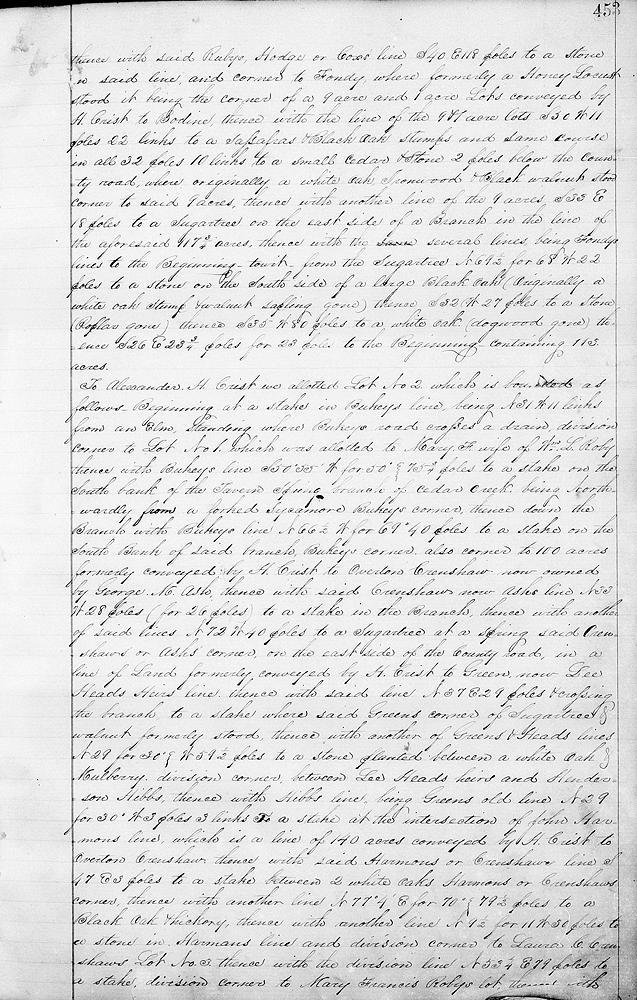 453
thence with said Rubys, Hodge or Coxs line S40 E118 poles to a Stone
in said line, and corner to Fondy, where formerly a Honey Locust
stood it being the corner of a 9 acre and 1 acre Lots conveyed by
H. Crist to Bodine, thence with the line of the 9 &1 acre lots S50 W 11
poles 22 links to a Sassafras & Black Oak Stumps and same course
in all 32 poles 10 links to a small Cedar & Stone 2 poles blow the coun-
-ty road, where originally a white oak, Ironwood & Black walnut stood
corner to said 9 acres, thence with another line of the 9 acres, S33 E
18 poles to a Sugartree on the east side of a Branch in the line of
the aforesaid 117¾ acres, thence with the same several lines, being Fondys
lines to the Beginning towit, from the Sugartree N69½ for 68 W 22
poles to a stone on the South side of a large Black Oak (Originally a
white oak Stump & walnut sapling gone) thence S32 W 27 poles to a Stone
(Poplar gone) thence S35 W 80 poles to a white oak (dogwood gone) th-
-ence S26 E 23¾ poles for 23 poles to the Beginning containing 113
acres.
To Alexander H Crist we allotted Lot No 2 which is bounded as
follows Beginning at a stake in Bukeys line, being N31 W 11 links
from an Elm, Standing where Bukeys road crosses a drain, division
corner to Lot No 1. which was allotted to Mary F. wife of Wm. L Roby
thence with Bukeys line S50°55' W for 50° poles to a stake on the
South bank of the Tavern Spring branch of Cedar Creek being North
-wardly from a forked Sycamore Bukeys corner, thence down the
Branch with Bukeys line N66½ W for 69° 40 poles to a stake on the
South Bank of said branch, Bukeys corner. also corner to 100 acres
formerly conveyed by H. Crist to Overton Crenshaw now owned
by George M. Ash, thence with said Crenshaw now Ashs line N33
W 28 poles (for 26 poles) to a stake in the Branch, thence with another
of said lines N72 W 40 poles to a Sugartree at a Spring said Cren-
-shaws or Ashs corner, on the east side of the County road, in a
line of Land formerly conveyed by H. Crist to Green, now Lee
Heads Heirs line. thence with said line N37 E 29 poles & crossing
the branch, to a stake where said Greens corner of Sugartree &
walnut formerly stood, thence with another of Greens & Heads lines
N29 for 30° W 59½ poles to a stone planted between a white Oak &
Mulberry. division corner, between Lee Heads heirs and Hender-
-son Hibbs, thence with Hibbs line, being Greens old line N29
for 30° W 3 poles 3 links to a stake at the intersection of John Har-
mons line, which is a line of 140 acres conveyed by H. Crist to
Overton Crenshaw thence with said Harmons or Crenshaws line S
47 E 3 poles to a stake between 2 white Oaks Harmons or Crenshaws
corner, thence with another line N77° 4' E for 70° 79½ poles to a
Black Oak & hickory, thence with another line N9½ for 11 W 50 poles to
a stone in Harmans line and division corner to Laura C Cren-
shaws Lot No 3. thence with the division line N53¼ E 79 poles to
a stake, division corner to Mary Francis Robys lot thence with